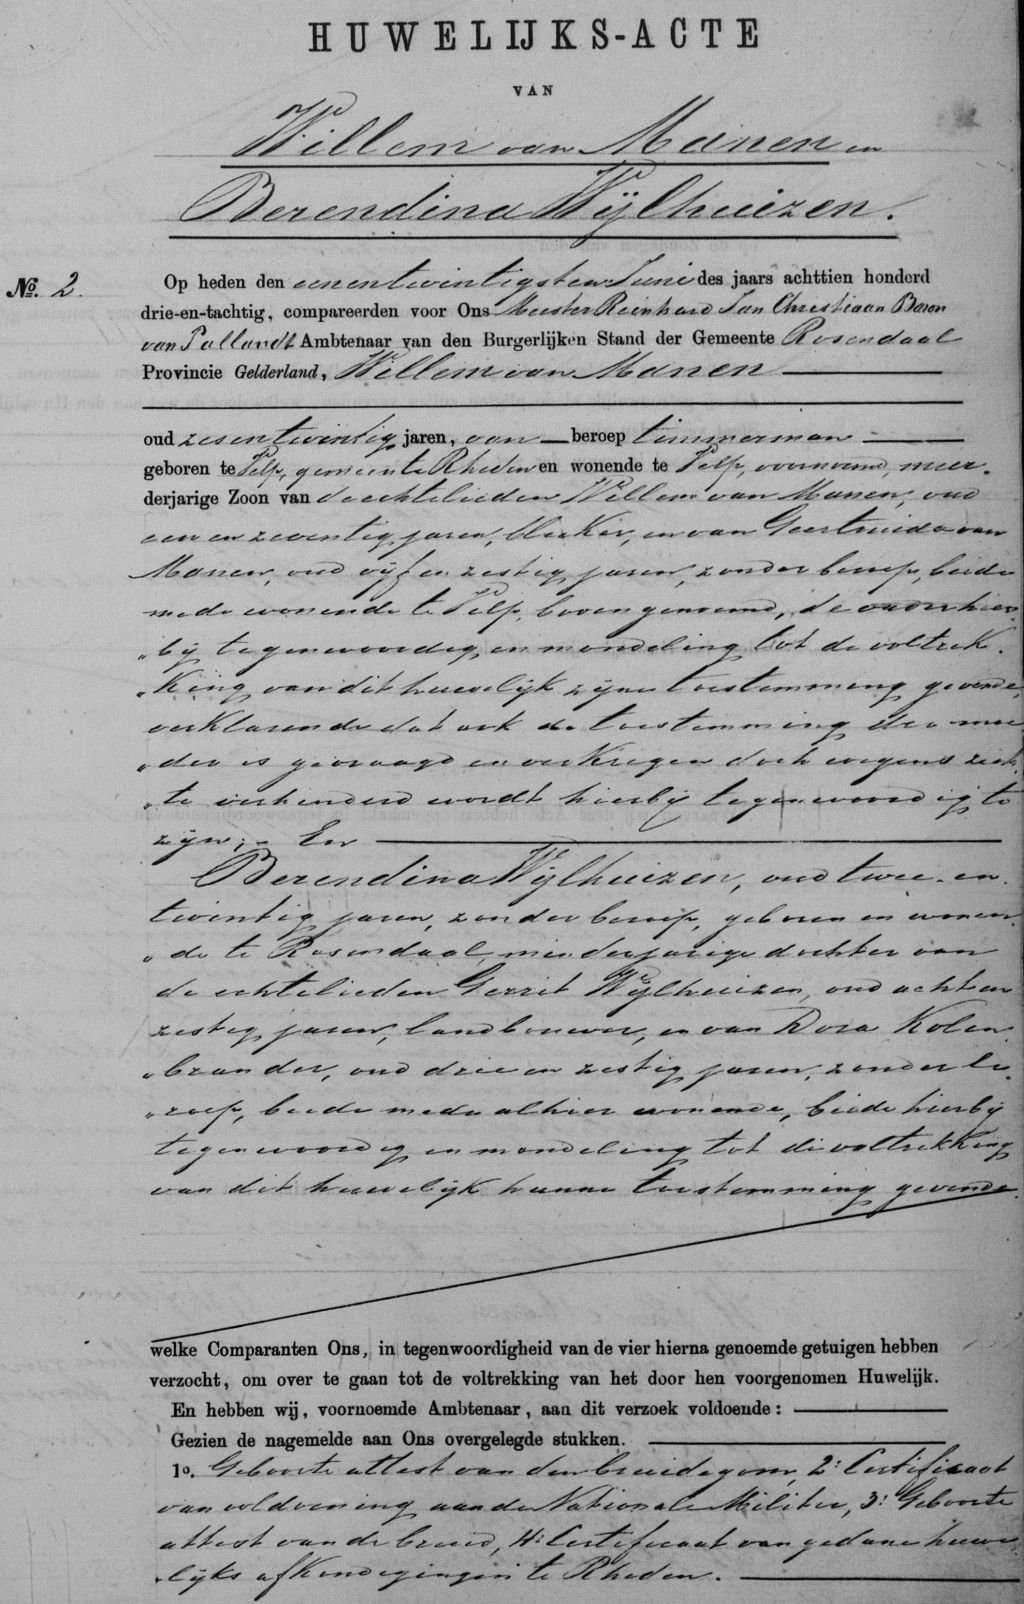 HUWELIJKS-ACTE
VAN
Willem van Manen en
Berendina Wijlhuizen.
No. 2.
Op heden den eenentwintigsten Juni des jaars achttien honderd
drie-en-tachtig, compareerden voor Ons Meester Reinhard Jan Christiaan Baron
van Pallandt Ambtenaar van den Burgerlijken Stand der Gemeente Rosendaal
Provincie Gelderland, Willem van Manen
oud zesentwintig jaren, van beroep timmerman
geboren te Velp, gemeente Rheden en wonende te Velp, voornoemd, meer-
derjarige Zoon van de echtelieden Willem van Manen, oud
een en zeventig jaren, bleker, en van Geertruida van
Manen, oud vijf en zestig jaren, zonder beroep, beide
mede wonende te Velp, bovengenoemd, de vader hier-
"bij tegenwoordig en mondeling tot de voltrek-
"king van dit huwelijk zijne toestemming gevende,
verklarende dat ook de toestemming der moe
"der is gevraagd en verkregen doch wegens ziek-
"te verhinderd wordt hierbij tegenwoordig te
zijn; - En
Berendina Wijlhuizen, oud twee- en-
twintig jaren, zonder beroep, geboren en wonen-
"de te Rosendaal, minderjarige dochter van
de echtelieden Gerrit Wijlhuizen, oud acht en
zestig jaren, landbouwer, en van Dora Kolen-
"brander, oud drie en zestig jaren, zonder be-
"roep, beide mede alhier wonende, beide hierbij
tegenwoordig en mondeling tot de voltrekking
van dit huwelijk hunne toestemming gevende.
welke Comparanten Ons, in tegenwoordigheid van de vier hierna genoemde getuigen hebben
verzocht, om over te gaan tot de voltrekking van het door hen voorgenomen Huwelijk.
En hebben wij, voornoemde Ambtenaar, aan dit verzoek voldoende:
Gezien de nagemelde aan Ons overgelegde stukken.
1o. Geboorte attest van den bruidegom, 2: Certificaat
van voldoening aan de Nationale Militie, 3: Geboorte
attest van de bruid, 4: Certificaat van gedane huwe
"lijks afkondigingen te Rheden.